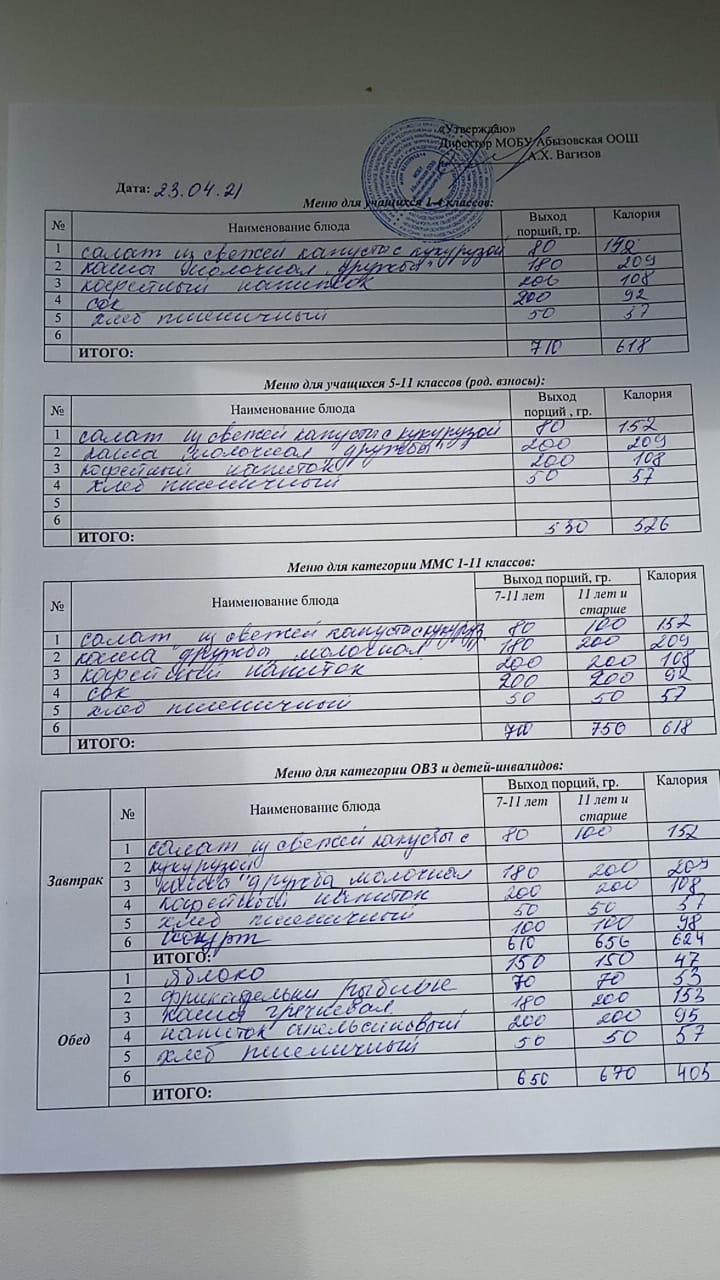 «Утверждаю»
Директор МОБУ Абызовская ООШ
А.Х. Вагизов
Дата: 23.04.21
Меню для учащихся 1-4 классов:
№ Наименование блюда Выход порций, гр. Калория
1 салат из свежей капусты с кукурузой 80 152
2 каша молочная "дружба" 180 209
3 кофейный напиток 200 108
4 сок 200 92
5 хлеб пшеничный 50 57
6
ИТОГО: 710 618
Меню для учащихся 5-11 классов (род. взносы):
№ Наименование блюда Выход порций , гр. Калория
1 салат из свежей капусты с кукурузой 80 152
2 каша молочная "дружбы" 200 209
3 кофейный напиток 200 108
4 хлеб пшеничный 50 57
5
6
ИТОГО: 530 526
Меню для категории ММС 1-11 классов:
№ Наименование блюда Выход порций, гр. Калория
7-11 лет 11 лет и старше
1 салат из свежей капусты с кукуруз 80 100 152
2 каша "дружбы молочная" 180 200 209
3 кофейный напиток 200 200 108
4 сок 200 200 92
5 хлеб пшеничный 50 50 57
6
ИТОГО: 710 750 618
Меню для категории ОВЗ и детей-инвалидов:
№ Наименование блюда Выход порций, гр. Калория
7-11 лет 11 лет и старше
Завтрак
1 салат из свежей капусты с 80 100 152
2 кукурузой
3 каша "дружба молочная 180 200 209
4 кофейный напиток 200 200 108
5 хлеб пшеничный 50 50 57
6 йогурт 100 100 98
ИТОГО: 610 656 624
Обед
1 яблоко 150 150 47
2 фрикадельки рыбные 70 70 53
3 каша гречневая 180 200 153
4 напиток апельсиновый 200 200 95
5 хлеб пшеничный 50 50 57
6
ИТОГО: 650 670 405